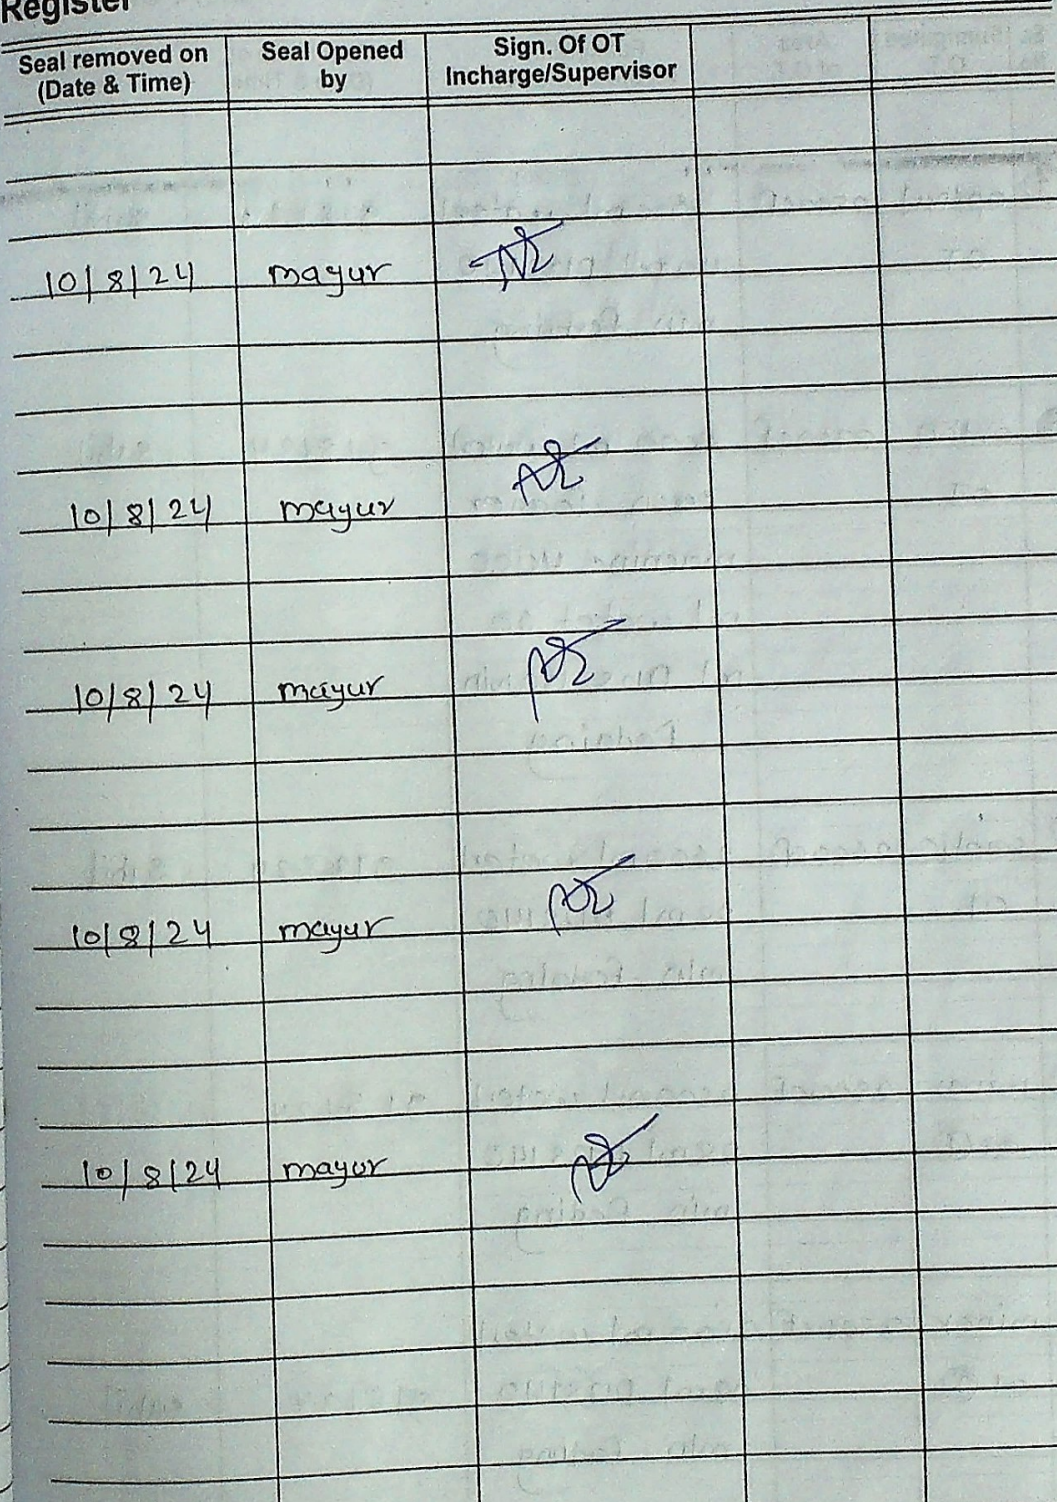 Register
Seal removed on (Date & Time) Seal Opened by Sign. Of OT Incharge/Supervisor
10/8/24 mayur
10/8/24 mayur
10/8/24 mayur
10/8/24 mayur
10/8/24 mayur